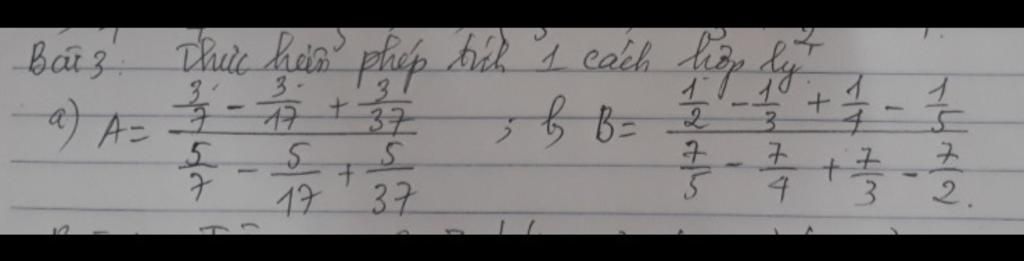 Bài 3: Thực hiện phép tính 1 cách hợp lý
a) A = \frac{\frac{3}{7} - \frac{3}{17} + \frac{3}{37}}{\frac{5}{7} - \frac{5}{17} + \frac{5}{37}} ; b, B = \frac{\frac{1}{2} - \frac{1}{3} + \frac{1}{4} - \frac{1}{5}}{\frac{7}{5} - \frac{7}{4} + \frac{7}{3} - \frac{7}{2}}.